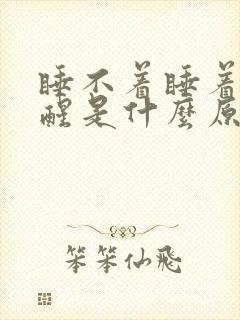 睡不着睡着
醒是什麼原
笨笨仙飛